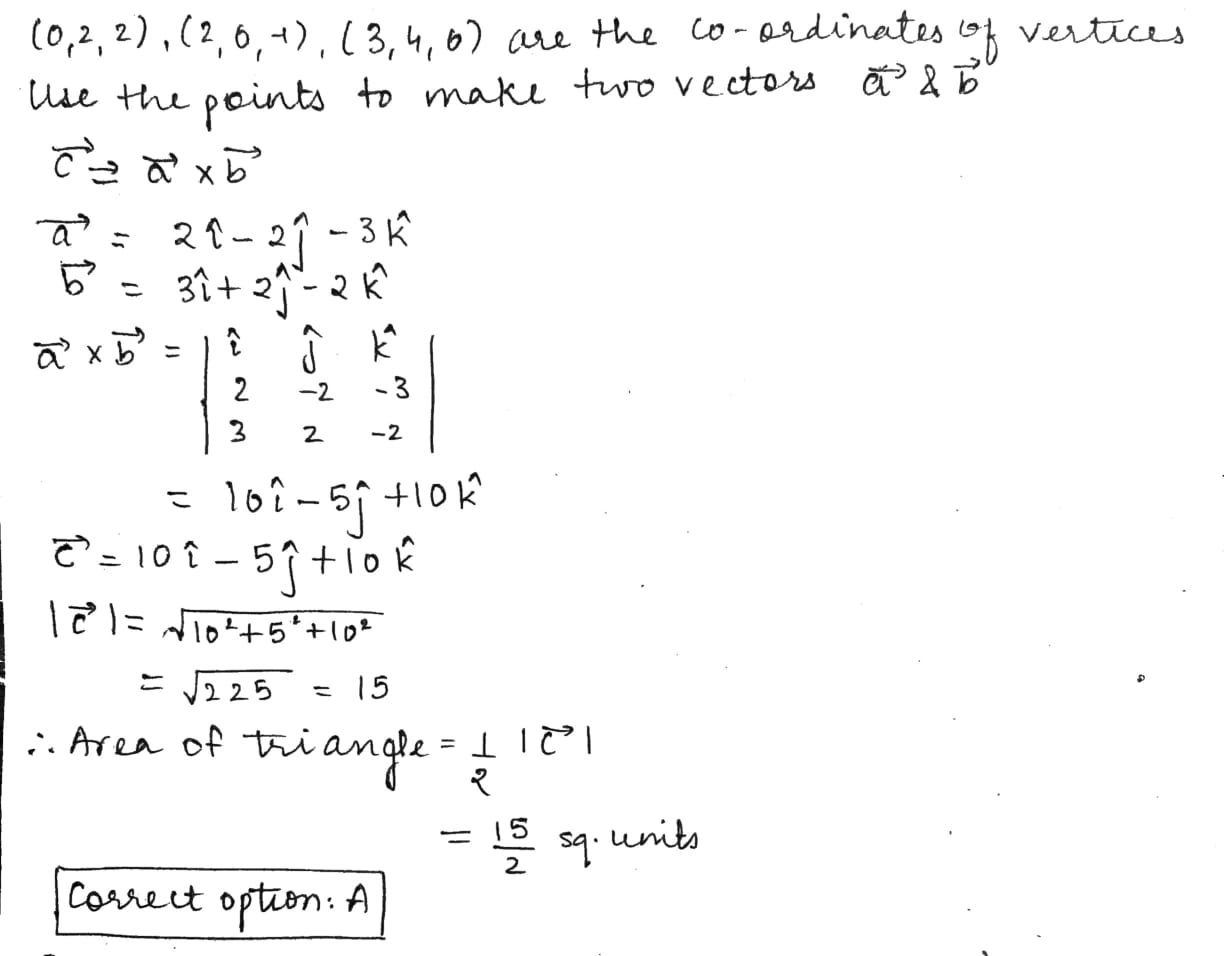 (0,2,2), (2,0,-1), (3,4,0) are the co-ordinates of vertices
Use the points to make two vectors a⃗ & b⃗
c⃗ = a⃗ × b⃗
a⃗ = 2î - 2ĵ - 3k̂
b⃗ = 3î + 2ĵ - 2k̂
a⃗ × b⃗ = | î ĵ k̂ |
2 -2 -3
3 2 -2
= 10î - 5ĵ + 10k̂
c⃗ = 10î - 5ĵ + 10k̂
|c⃗| = √10² + 5² + 10²
= √225 = 15
∴ Area of triangle = 1/2 |c⃗|
= 15/2 sq. units
Correct option: A